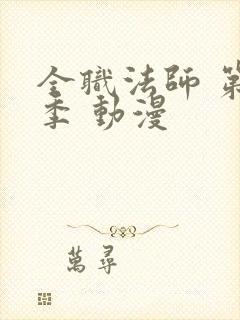 全職法師 第
季 動漫
萬尋